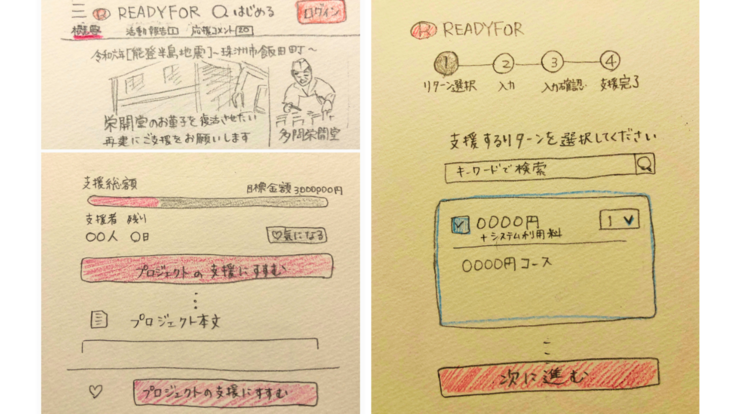 READYFOR はじめる ログイン
概要 活動報告 応援コメント
令和六年[能登半島地震]~珠洲市飯田町~
栄開堂のお菓子を復活させたい
再建にご支援をお願いします
多間栄開堂
支援総額 目標金額3000000円
支援者 残り
〇〇人 〇日 ♡気になる
プロジェクトの支援にすすむ
プロジェクト本文
プロジェクトの支援にすすむ
READYFOR
1 2 3 4
リターン選択 入力 入力確認 支援完了
支援するリターンを選択してください
キーワードで検索
0000円 1
+システム利用料
0000円コース
次に進む